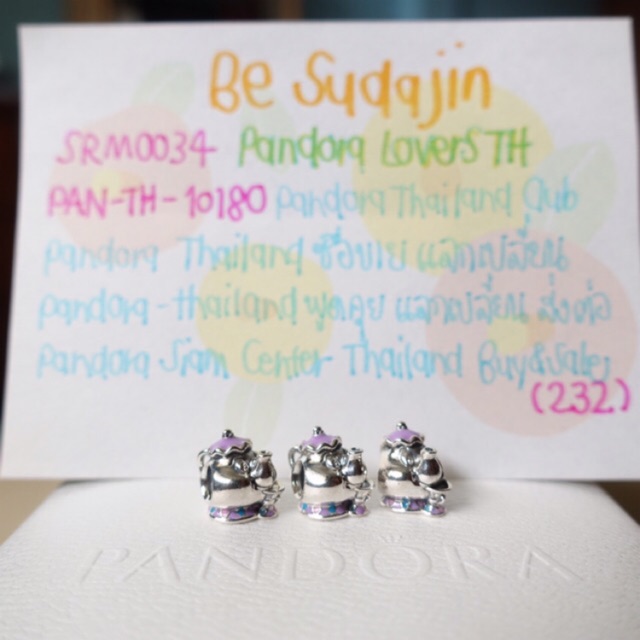 Be Sudajin
SRM0034 Pandora Lovers TH
PAN-TH-10180 Pandora Thailand Club
Pandora Thailand ซื้อขาย แลกเปลี่ยน
Pandora-thailand พูดคุย แลกเปลี่ยน ส่งต่อ
Pandora Siam Center Thailand Buy&Sale,
(232)
PANDORA